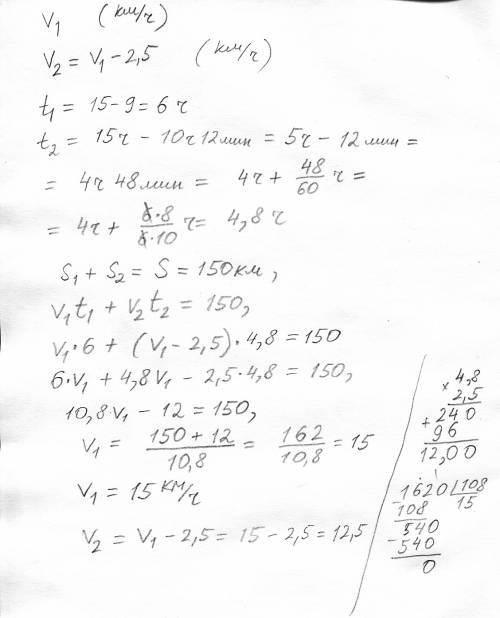 v₁ (км/ч)
v₂ = v₁ - 2,5 (км/ч)
t₁ = 15 - 9 = 6 ч
t₂ = 15ч - 10ч 12мин = 5ч - 12мин =
= 4ч 48мин = 4ч + 48/60 ч =
= 4ч + 6·8/6·10 ч = 4,8 ч
S₁ + S₂ = S = 150км,
v₁t₁ + v₂t₂ = 150,
v₁·6 + (v₁ - 2,5)·4,8 = 150
6·v₁ + 4,8v₁ - 2,5·4,8 = 150,
10,8·v₁ - 12 = 150,
v₁ = 150 + 12/10,8 = 162/10,8 = 15
v₁ = 15 км/ч
v₂ = v₁ - 2,5 = 15 - 2,5 = 12,5
× 4,8
2,5
+ 240
96
12,00
1620 | 108
- 108 15
540
- 540
0